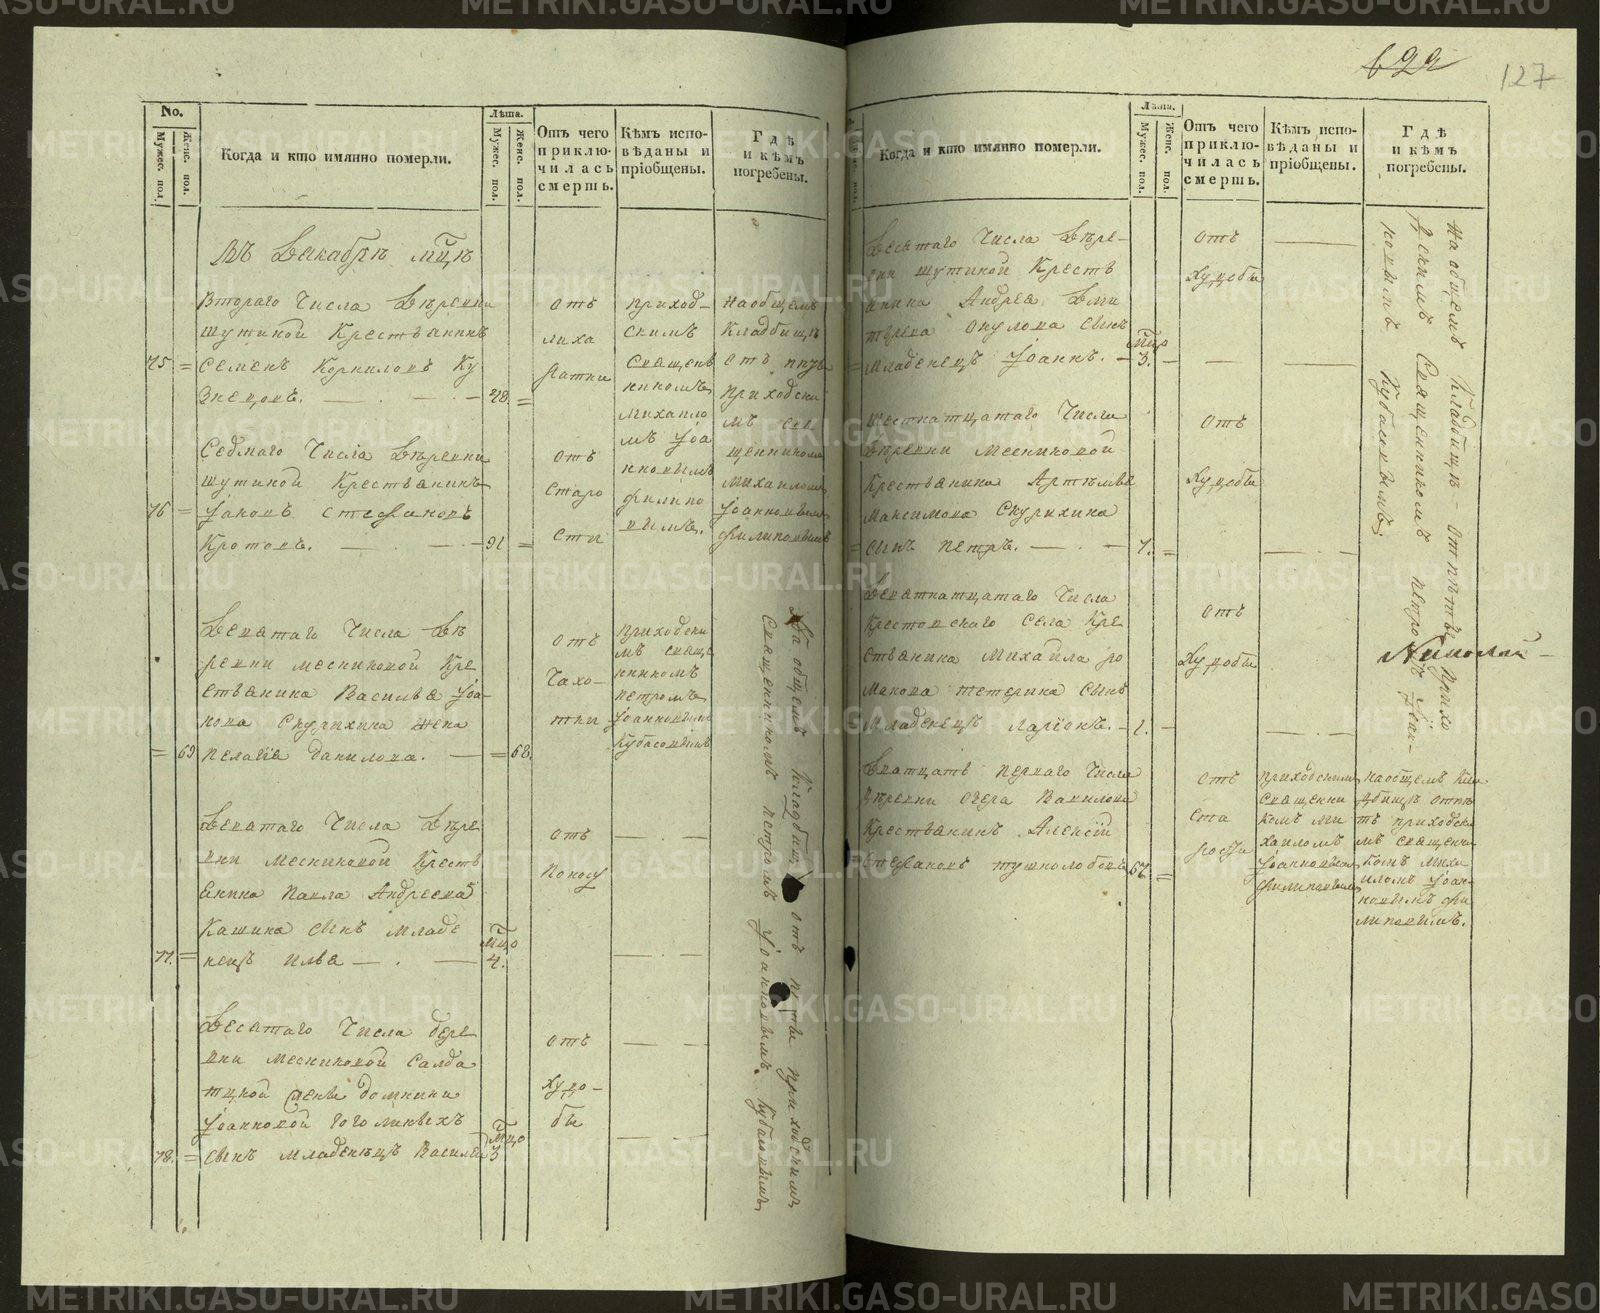 622
127
No.
Мужес. пол.
Женс. пол.
Когда и кто имянно померли.
Лѣта.
Мужес. пол.
Женс. пол.
Отъ чего
приклю-
чилась
смерть.
Кѣмъ испо-
вѣданы и
пріобщены.
Гдѣ
и кѣмъ
погребены.
Въ Декабрѣ мцѣ
Втораго Числа Деревни
Шутиной Крестьянинъ
75 = Семенъ Корниловъ Ку
знецовъ. — 48. =
отъ
лиха
ратки
приход-
скимъ
Священ
никомъ
Михаило
мъ Іоа
нновымъ
Филипо
вымъ.
На общемъ
Кладбищѣ
приходски
мъ свя
щенникомъ
Михаиломъ
Іоанновымъ
Филиповымъ
Седмаго Числа Деревни
Шутиной Крестьянинъ
76 = Іаковъ Стефановъ
Кротовъ. — 91 =
отъ
Старо
сти
Девятаго Числа Де
ревни Месниковой Кре
стьянина Василья Іоа-
нова Скурихина жена
= 69 Пелагіе Данилова. — = 68.
отъ
Чахо-
тки
приходски
мъ свяще
нникомъ
Петромъ
Іоанновымъ
Кубасовымъ
Девятаго Числа Дере
вни Месниковой Кресть
янина Павла Андреева
Кашина сынъ младе
77. = нецъ Илья — . — мцо 4.
отъ
Поносу
Десятаго Числа дере
вни Месниковой Салда
тцкой жены Домнини
Іоанновой
78. = сынъ младенецъ Василей мцо 3
отъ
Худо-
бы
На общемъ Кладбищѣ отъ приходскимъ
Священникомъ Петромъ Іоанновымъ Кубасовымъ
Когда и кто имянно померли.
Лѣта.
Мужес. пол.
Женс. пол.
Отъ чего
приклю-
чилась
смерть.
Кѣмъ испо-
вѣданы и
пріобщены.
Гдѣ
и кѣмъ
погребены.
Десятаго Числа Дере-
вни Шутиной Кресть
янина Андрея Дми
трева Окулова сынъ
Младенецъ Іоаннъ. — мцо 3. —
отъ
Худобы
Шестнатцатаго Числа
Деревни Месниковой
Крестьянина Артемья
Максимова Скурихина
сынъ Петръ. — . — 7. =
отъ
Худобы
Девятнатцатаго Числа
Крестовскаго Села Кре
стьянина Михайла Ро
манова Тетерина сынъ
Младенецъ Ларіонъ. — 1. —
отъ
Худобы
На общемъ Кладбищѣ отпѣты прихо
дскимъ Священникомъ Петромъ Іоан-
новымъ Кубасовымъ
Николай
Дватцать перваго Числа
Деревни Озера Вавилова
Крестьянинъ Алексій
Стефановъ Тушнолобовъ 67. =
отъ
ста
рости
приходскимъ
священни
комъ Ми
хаиломъ
Іоанновымъ
Филиповымъ
На общемъ Кла
дбищѣ отпѣ
тъ приходски
мъ священни
комъ Миха
иломъ Іоан-
новымъ Фи
липовымъ.
METRIKI.GASO-URAL.RU